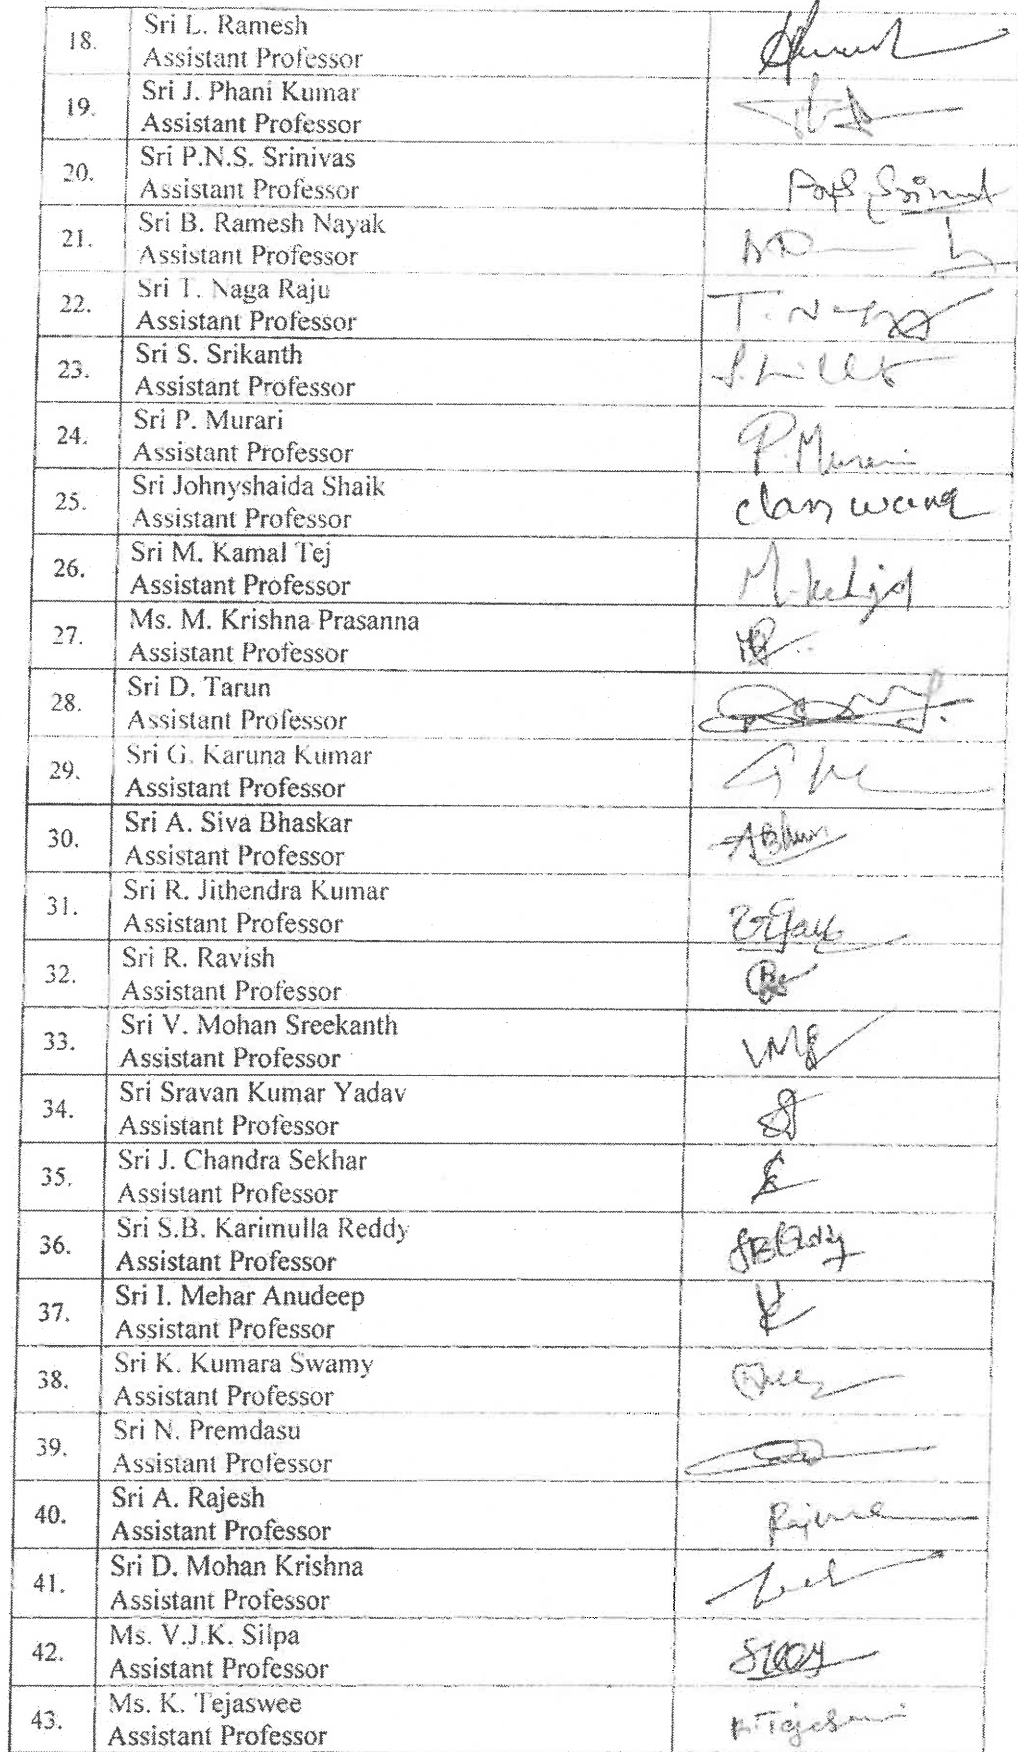 18. Sri L. Ramesh
Assistant Professor
19. Sri J. Phani Kumar
Assistant Professor
20. Sri P.N.S. Srinivas
Assistant Professor
21. Sri B. Ramesh Nayak
Assistant Professor
22. Sri T. Naga Raju
Assistant Professor
T. N
23. Sri S. Srikanth
Assistant Professor
24. Sri P. Murari
Assistant Professor
P. Murari
25. Sri Johnyshaida Shaik
Assistant Professor
class work
26. Sri M. Kamal Tej
Assistant Professor
27. Ms. M. Krishna Prasanna
Assistant Professor
28. Sri D. Tarun
Assistant Professor
29. Sri G. Karuna Kumar
Assistant Professor
30. Sri A. Siva Bhaskar
Assistant Professor
31. Sri R. Jithendra Kumar
Assistant Professor
32. Sri R. Ravish
Assistant Professor
33. Sri V. Mohan Sreekanth
Assistant Professor
34. Sri Sravan Kumar Yadav
Assistant Professor
35. Sri J. Chandra Sekhar
Assistant Professor
36. Sri S.B. Karimulla Reddy
Assistant Professor
37. Sri I. Mehar Anudeep
Assistant Professor
38. Sri K. Kumara Swamy
Assistant Professor
39. Sri N. Premdasu
Assistant Professor
40. Sri A. Rajesh
Assistant Professor
41. Sri D. Mohan Krishna
Assistant Professor
42. Ms. V.J.K. Silpa
Assistant Professor
43. Ms. K. Tejaswee
Assistant Professor